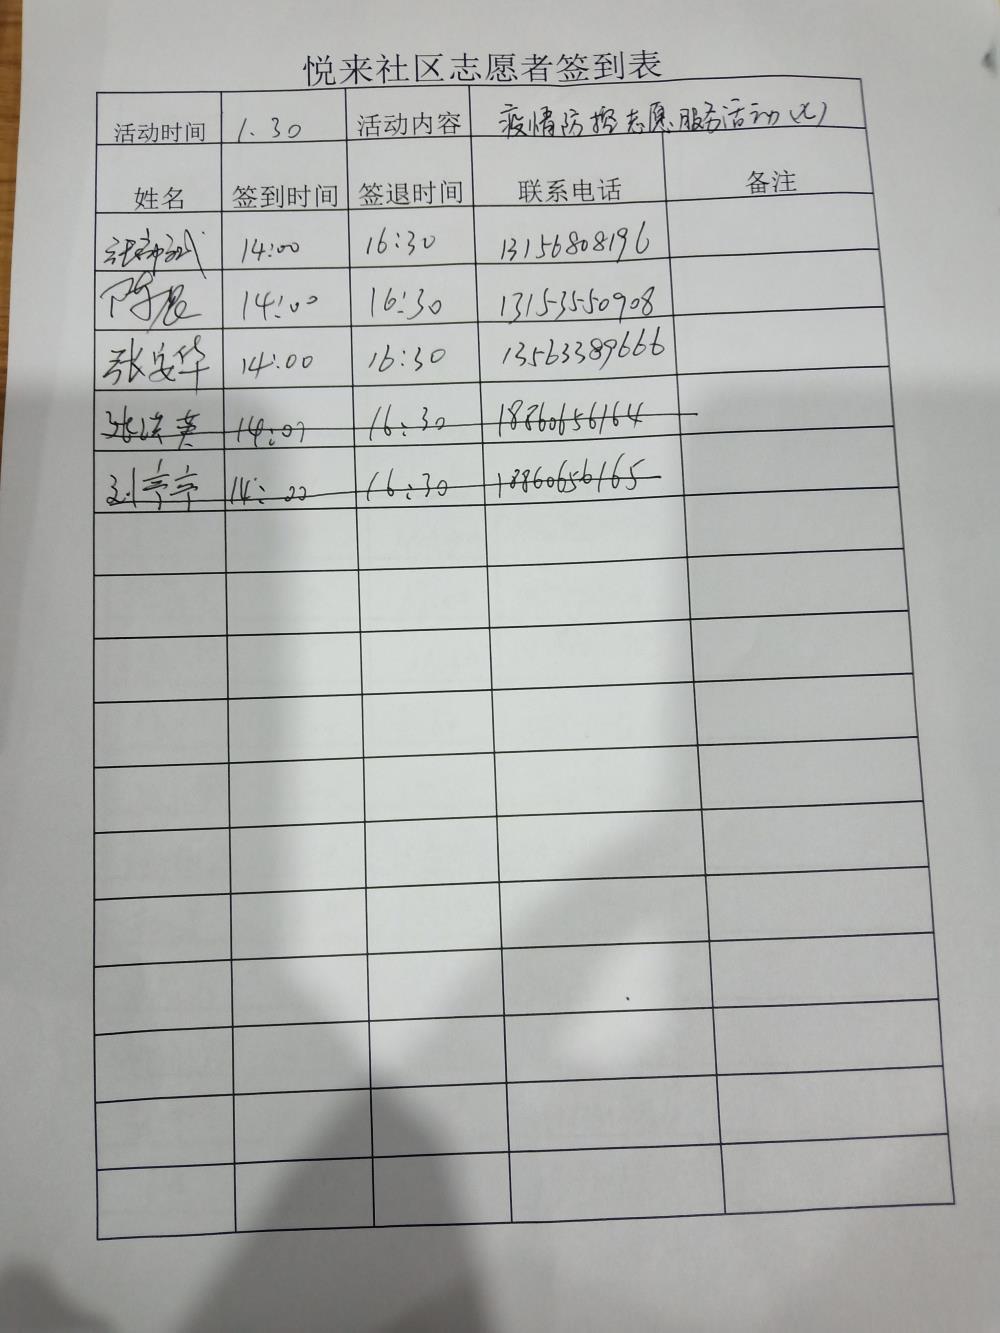 悦来社区志愿者签到表
活动时间 1.30 活动内容 疫情防控志愿服务活动(七)
姓名 签到时间 签退时间 联系电话 备注
14:00 16:30 13156808196
陈晨 14:00 16:30 13153550908
张安华 14:00 16:30 13563389666
张洪英 14:07 16:30 18860656164
刘亭亭 14:00 16:30 18860656165